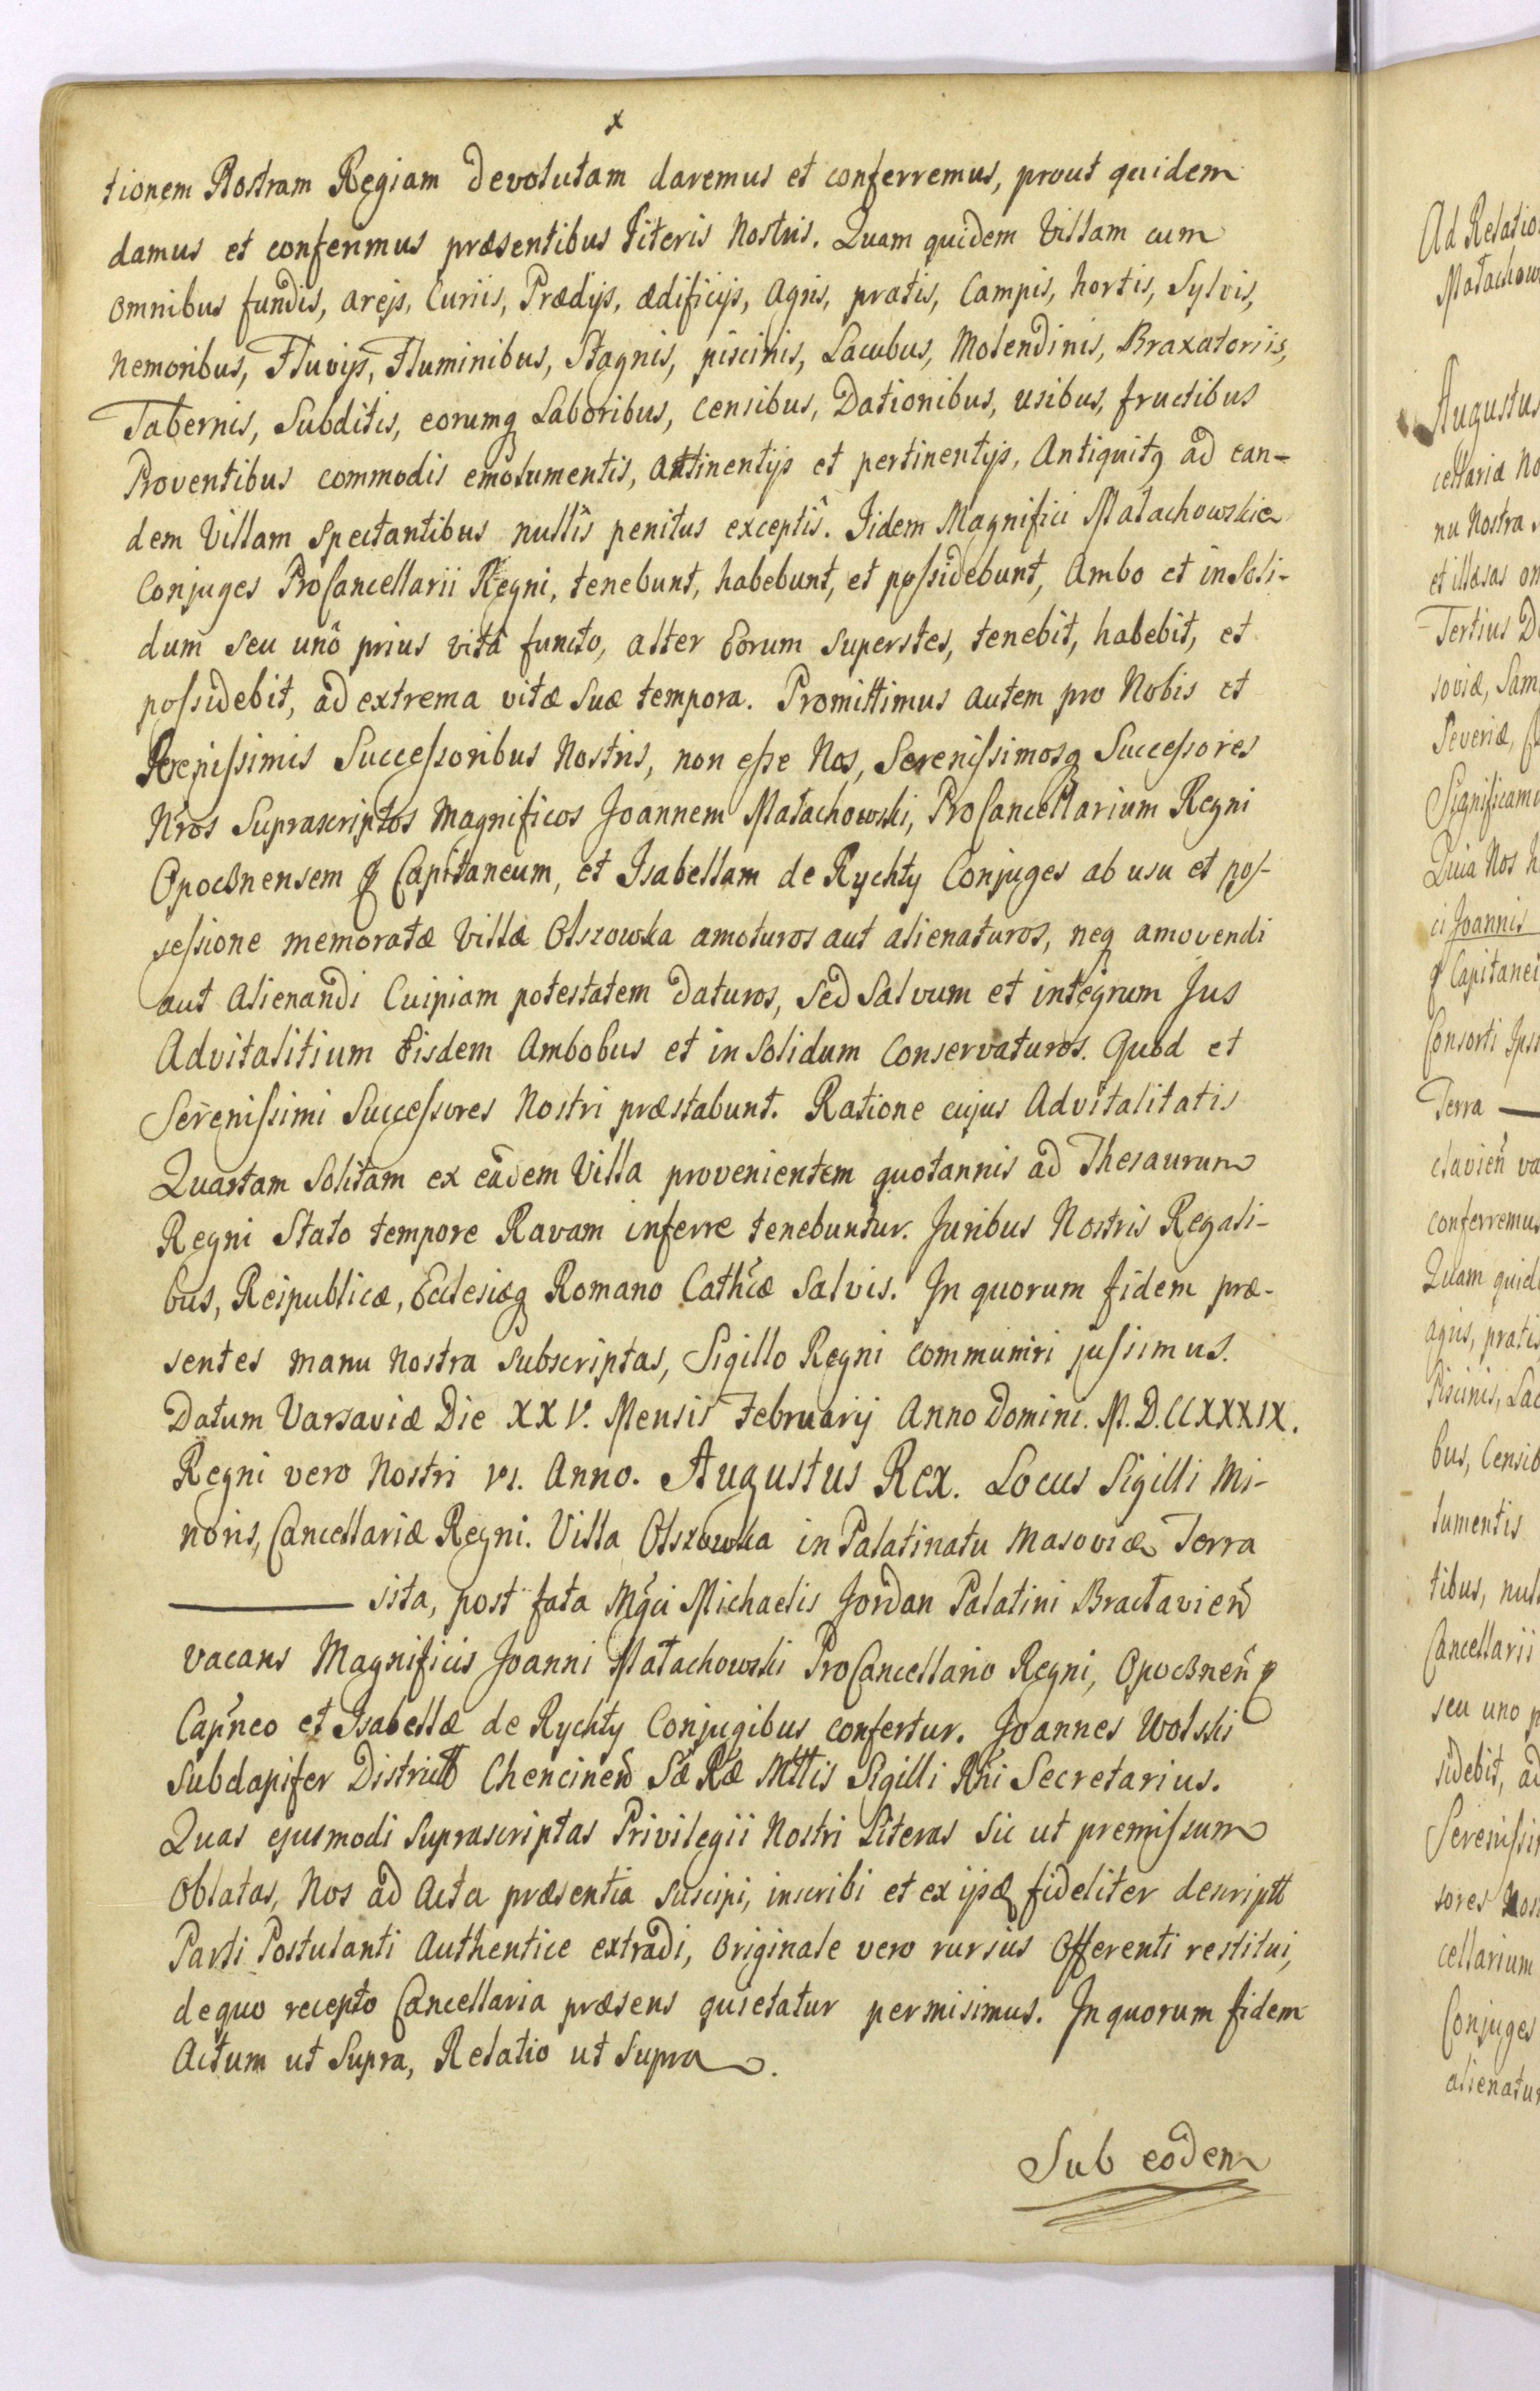 x
tionem Nostram Regiam devolutam daremus et conferremus, prout quidem
damus et conferimus præsentibus Literis Nostris. Quam quidem Villam cum
omnibus fundis, arejs, Curiis, Prædijs, ædificijs, Agris, pratis, Campis, hortis, Sylvis,
Nemoribus, Fluvijs, Fluminibus, Stagnis, piscinis, Lacubus, Molendinis, Braxatoriis,
Tabernis, Subditis, eorumq Laboribus, Censibus, Dationibus, usibus, fructibus
Proventibus commodis emolumentis, Attinentijs et pertinentijs, Antiquitq ad ean-
dem Villam Spectantibus nullîs penitus exceptîs. Iidem Magnifici Małachowskie
Conjuges ProCancellarii Regni, tenebunt, habebunt, et poſsidebunt, Ambo et in Soli-
dum seu unô prius vitâ functo, alter Eorum Superstes, tenebit, habebit, et
poſsidebit, ad extrema vitæ Suæ tempora. Promittimus autem pro Nobis et
Sereniſsimis Succeſsoribus Nostris, non eſse Nos, Sereniſsimosq Succeſsores
N͠ros Suprascriptos Magnificos Joannem Małachowski, ProCancellarium Regni
Opocznensem q Capitaneum, et Isabellam de Rychty Conjuges ab usu et poſ-
seſsione memoratæ Villæ Olszowka amoturos aut alienaturos, neq amovendi
aut Alienandi Cuipiam potestatem daturos, Sed Salvum et integrum Jus
Advitalitium Eisdem Ambobus et in Solidum Conservaturos. Quod et
Sereniſsimi Succeſsores Nostri præstabunt. Ratione cujus Advitalitatis
Quartam Solitam ex eâdem Villa provenientem quotannis ad Thesaurum
Regni Stato tempore Ravam inferre tenebuntur. Juribus Nostris Regali-
bus, Reipublicæ, Ecclesiæq Romano Cath͠cæ Salvis. In quorum fidem præ-
sentes manu Nostra Subscriptas, Sigillo Regni communiri juſsimus.
Datum Varsaviæ Die XXV. Mensis Februarij Anno Domini. M.D.CCXXXIX.
Regni vero Nostri VI. Anno. Augustus Rex. Locus Sigilli Mi-
noris, Cancellariæ Regni. Villa Olszowka in Palatinatu Masoviæ Terra
——— sita, post fata M͠gci Michaelis Jordan Palatini Bracłavien͠
vacans Magnificis Joanni Małachowski ProCancellario Regni, Opocznen͠ q
Cap͠neo et Isabellæ de Rychty Conjugibus confertur. Joannes Wolski
Subdapifer Districtt Chencinen͠ Sæ Ræ Mttis Sigilli R͠ni Secretarius.
Quas ejusmodi Suprascriptas Privilegii Nostri Literas Sic ut premiſsum
Oblatas, Nos ad Acta præsentia Suscipi, inscribi et ex ijsdq fideliter descriptt
Parti Postulanti Authentice extradi, Originale vero rursus Offerenti restitui,
de quo recepto Cancellaria præsens quietatur permisimus. In quorum fidem
Actum ut Supra, Relatio ut Supra.
Sub eodem
Ad Relatio
Małachow
Augustus
cellariæ No
nu Nostra
et illæsas om
Tertius D
soviæ, Sam
Severiæ,
Significam
Quia Nos
ci Joannis
q Capitanei
Consorti Ips
Terra —
clavien͠ va
conferremus
Quam quid
agris, pratis
Piscinis, Lac
bus, Censib
lumentis
tibus, nul
Cancellarii
seu uno p
sidebit, ad
Sereniſsi
sores Nos
cellarium
Conjuges
alienatur